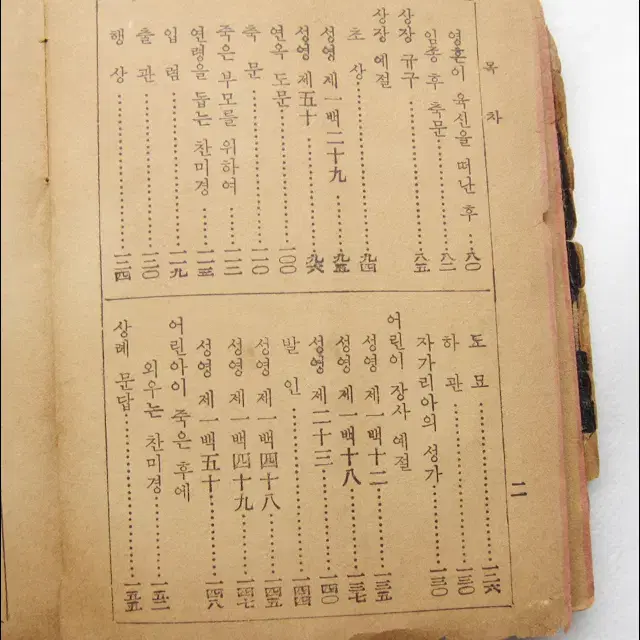 목차
영혼이 육신을 떠난 후 八〇
임종 후 축문 八二
상장 규구 八五
상장 예절
초상 九四
성영 제一백二十九 九五
성영 제五十 九六
연옥 도문 一〇〇
축문 一一〇
죽은 부모를 위하여 一一二
연령을 돕는 찬미경 一一三
입렴 一一九
출관 一二〇
행상 一二四
도묘 一二六
하관 一三〇
자가리아의 성가 一三〇
어린이 장사 예절
성영 제一백十二 一三五
성영 제一백十八 一三七
성영 제二十三 一四〇
발인 一四四
성영 제一백四十八 一四五
성영 제一백四十九 一四七
성영 제一백五十 一四八
어린아이 죽은 후에
외우는 찬미경 一五二
상례 문답 一五五
二